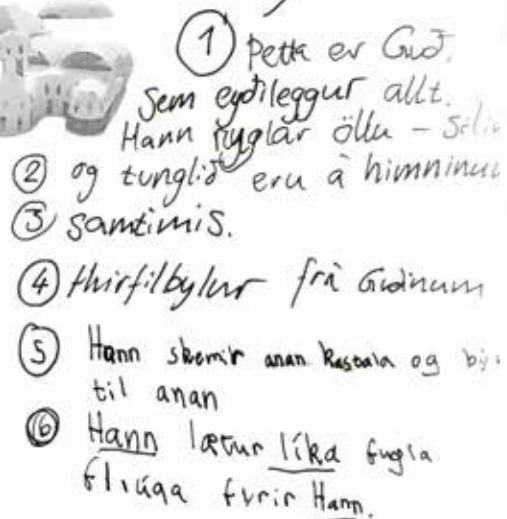 ① Þetta er Guð.
Sem eyðileggur allt.
Hann ryglar öllu –
② og tunglið eru á himninum
③ samtimis.
④ thirfilbylur frá Guðinum
⑤ Hann skemir anan kastala og
til anan
⑥ Hann lætur líka fugla
fliúga fyrir Hann.